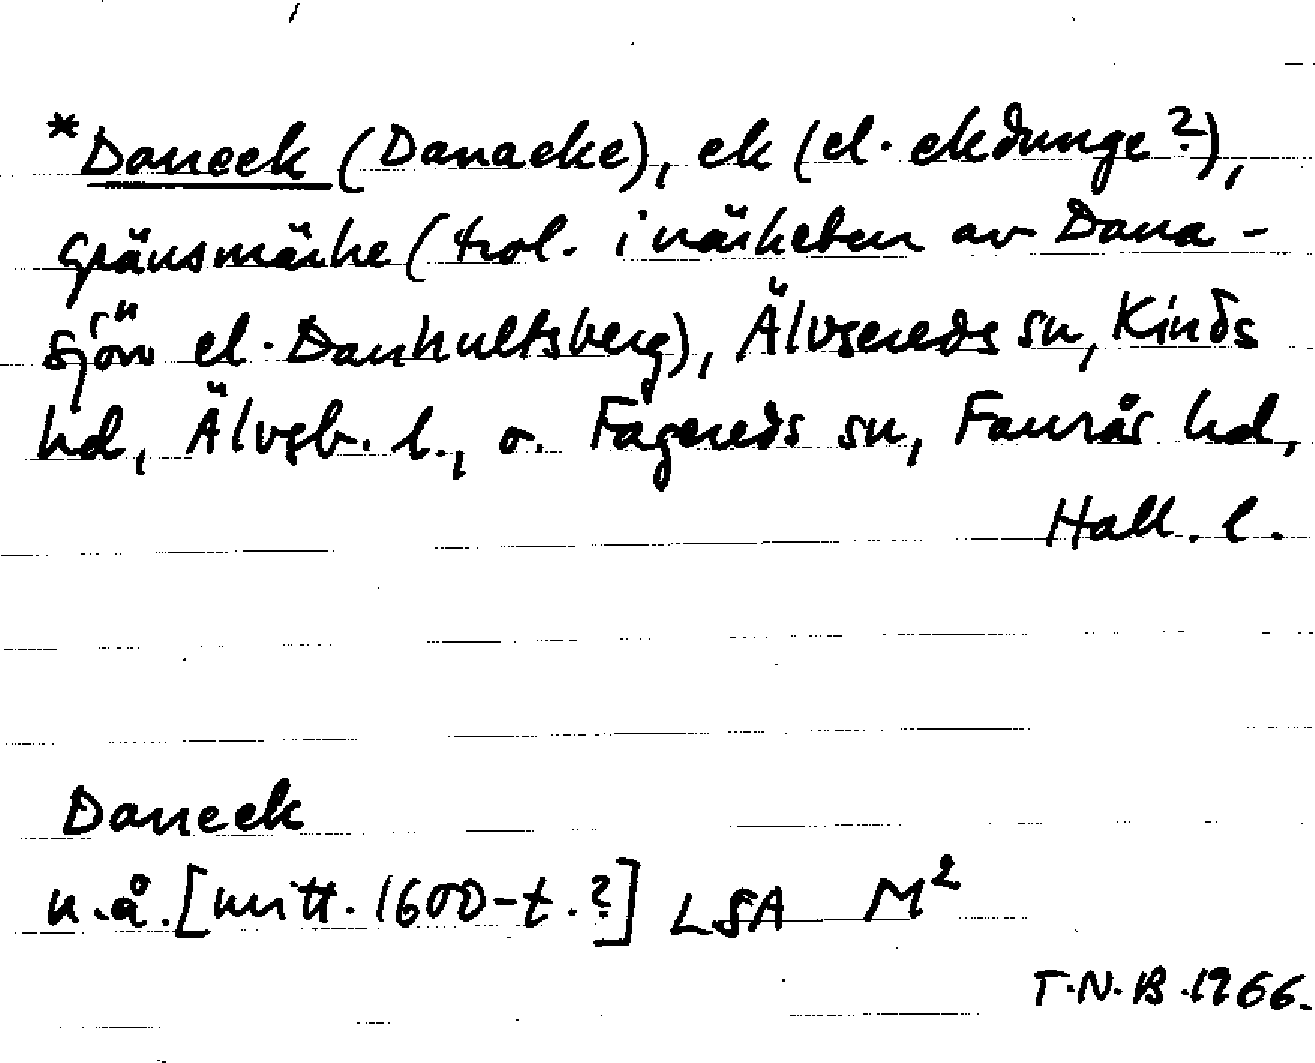 *Daneek (Danaeke), ek (el. ekdunge?),
gränsmärke (trol. i närheten av Dana-
sjön el. Danhultsberg), Älvsereds sn, Kinds
hd, Älvsb. l., o. Fagereds sn, Faurås hd,
Hall. l.
Daneek
u.å. [mitt. 1600-t.?] LSA M²
T.N.B. 1966.